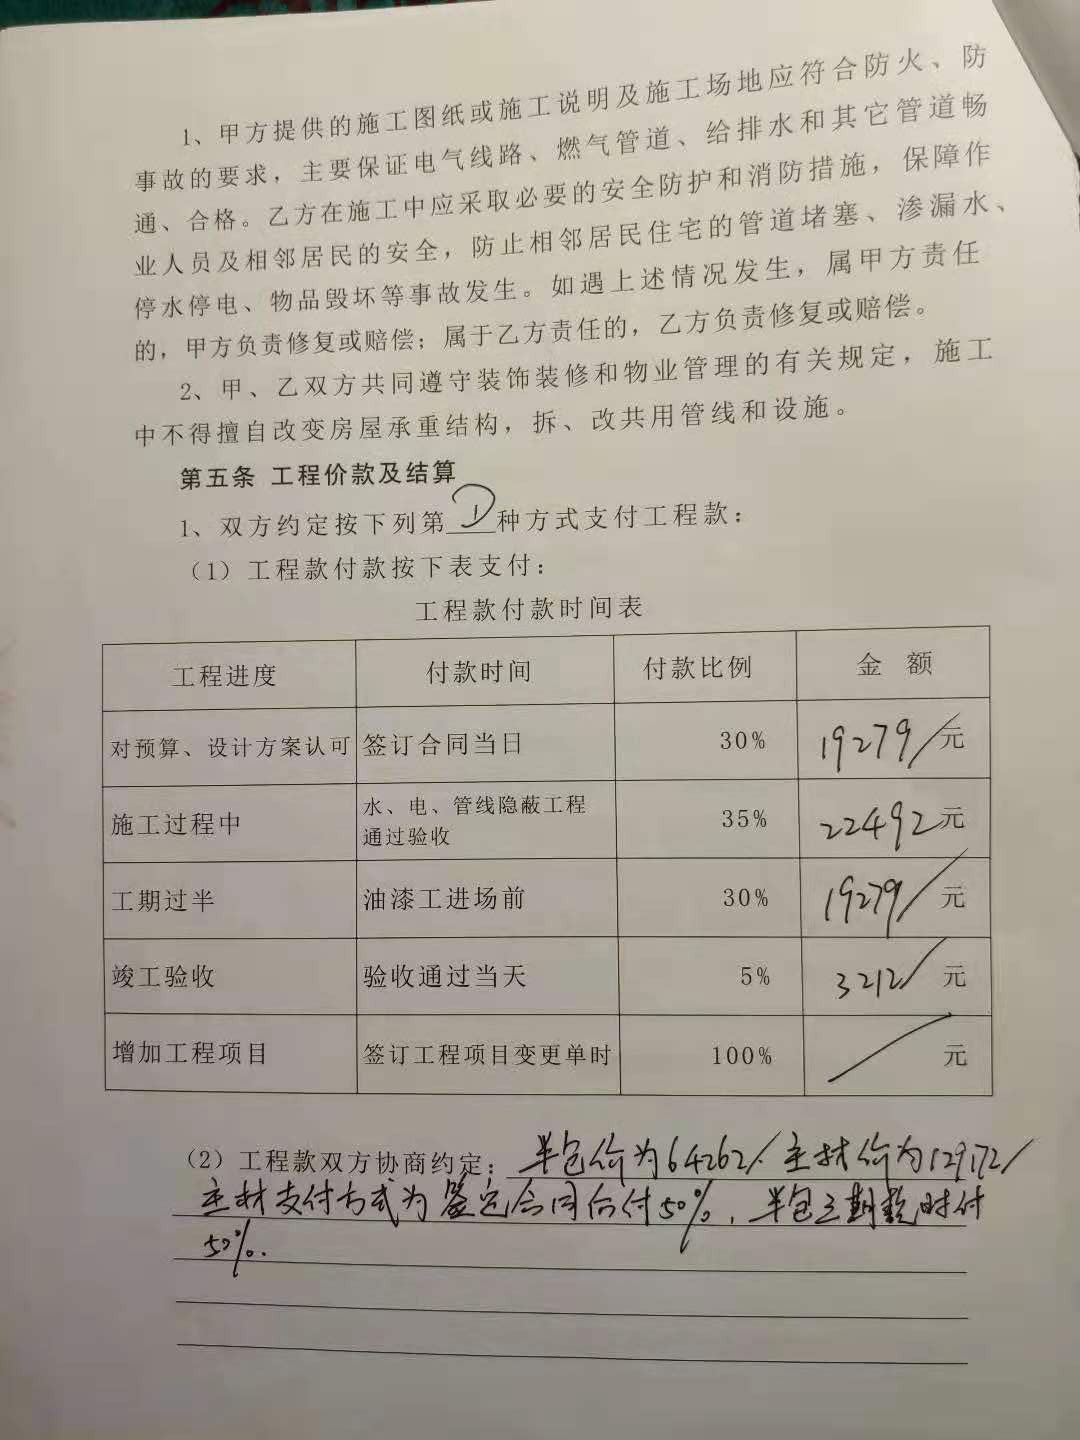 1、甲方提供的施工图纸或施工说明及施工场地应符合防火、防
事故的要求，主要保证电气线路、燃气管道、给排水和其它管道畅
通、合格。乙方在施工中应采取必要的安全防护和消防措施，保障作
业人员及相邻居民的安全，防止相邻居民住宅的管道堵塞、渗漏水、
停水停电、物品毁坏等事故发生。如遇上述情况发生，属甲方责任
的，甲方负责修复或赔偿；属于乙方责任的，乙方负责修复或赔偿。
2、甲、乙双方共同遵守装饰装修和物业管理的有关规定，施工
中不得擅自改变房屋承重结构，拆、改共用管线和设施。
第五条 工程价款及结算
1、双方约定按下列第 1 种方式支付工程款：
（1）工程款付款按下表支付：
工程款付款时间表
工程进度 付款时间 付款比例 金 额
对预算、设计方案认可 签订合同当日 30% 19279/元
施工过程中 水、电、管线隐蔽工程
通过验收 35% 22492元
工期过半 油漆工进场前 30% 19279/元
竣工验收 验收通过当天 5% 3212/元
增加工程项目 签订工程项目变更单时 100% / 元
（2）工程款双方协商约定：半包价为64262/. 主材价为129172/
主材支付方式为签定合同后付50%，半包三期款时付
50%.